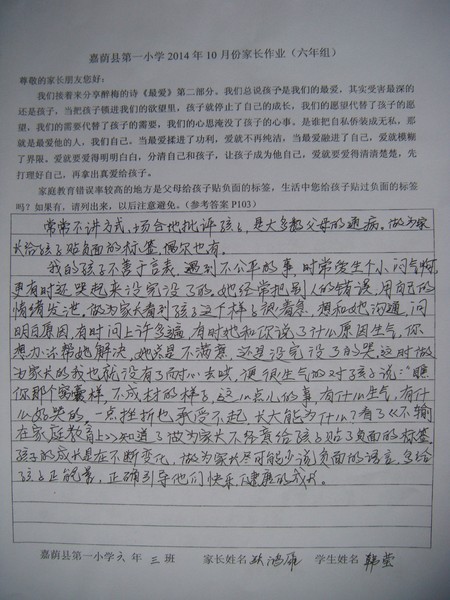 嘉荫县第一小学2014年10月份家长作业（六年组）
尊敬的家长朋友您好：
我们接着来分享醉梅的诗《最爱》第二部分。我们总说孩子是我们的最爱，其实受害最深的
还是孩子，当把孩子顿进我们的欲望里，孩子就停止了自己的成长，我们的愿望代替了孩子的愿
望，我们的需要代替了孩子的需要，我们的心思淹没了孩子的心事。是谁把自私侨装成无私，那
就是最爱他的人，我们自己。当爱揉进了功利，爱就不再纯洁，当最爱融进了自己，爱就模糊
了界限。爱就要爱得明明白白，分清自己和孩子，让孩子成为他自己，爱就要爱得清清楚楚，先
打理好自己，再拿出真爱给孩子。
家庭教育错误率较高的地方是父母给孩子贴负面的标签，生活中您给孩子贴过负面的标签
吗？如果有，请列出来，以后注意避免。（参考答案 P103）
常常不讲方式、场合地批评孩子，是大多数父母的通病。做为家
长给孩子贴负面的标签，偶尔也有。
我的孩子不善于言表，遇到不公平的事，时常爱生个小闷气，
更有时还哭起来没完没了的，她经常把别人的错误，用自己的
情绪发泄，做为家长看到孩子这个样子很着急，想和她沟通，问
明白原因，有时问上许多遍，有时她和你说了什么原因生气，你
想办法帮她解决，她总是不满意，还是没完没了的哭，这时做
为家长的我也就没有了耐心去哄，便很生气的对孩子说：瞧
你那个窝囊样，不成材的样子，这小点儿的事，有什么生气，有什
么好哭的，一点挫折也承受不起，长大能为什么？看了《不输
在家庭教育上》知道了做为家长不经意给孩子贴了负面的标签
孩子的成长是在不断变化，做为家长尽可能少说负面的语言，多给
孩子正能量，正确引导他们快乐、健康的成长。
嘉荫县第一小学六年三班 家长姓名 鸿雁 学生姓名 韩莹